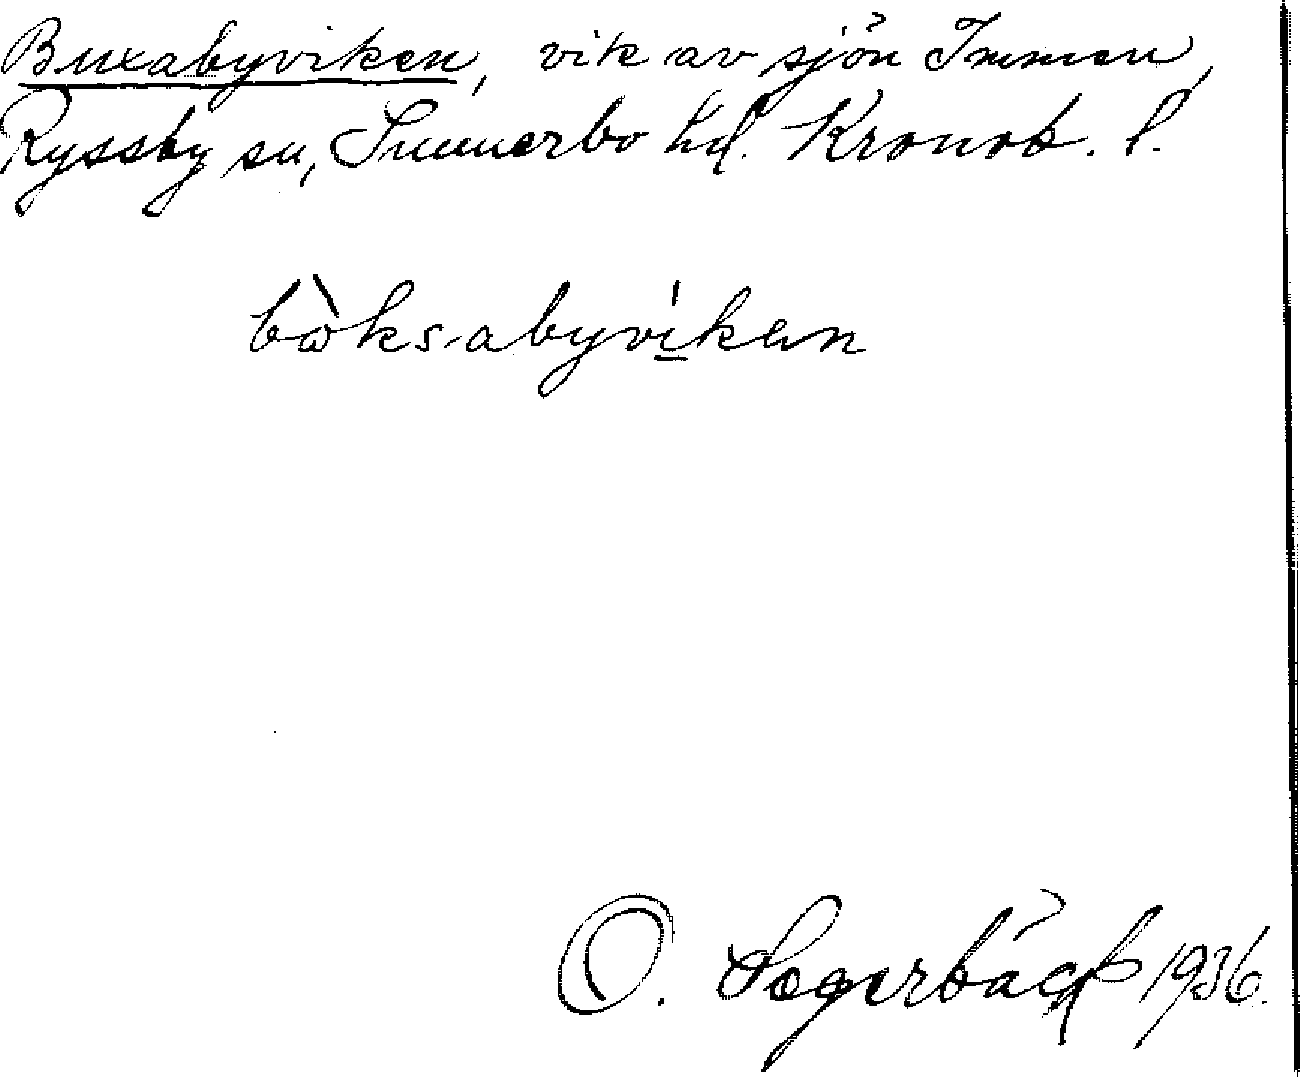 Buxabyviken, vik av sjön Immen,
Ryssby sn, Sunnerbo hd. Kronob. l.
bὼksabyvi̲̍kən
O. Sagerbäck 1936.